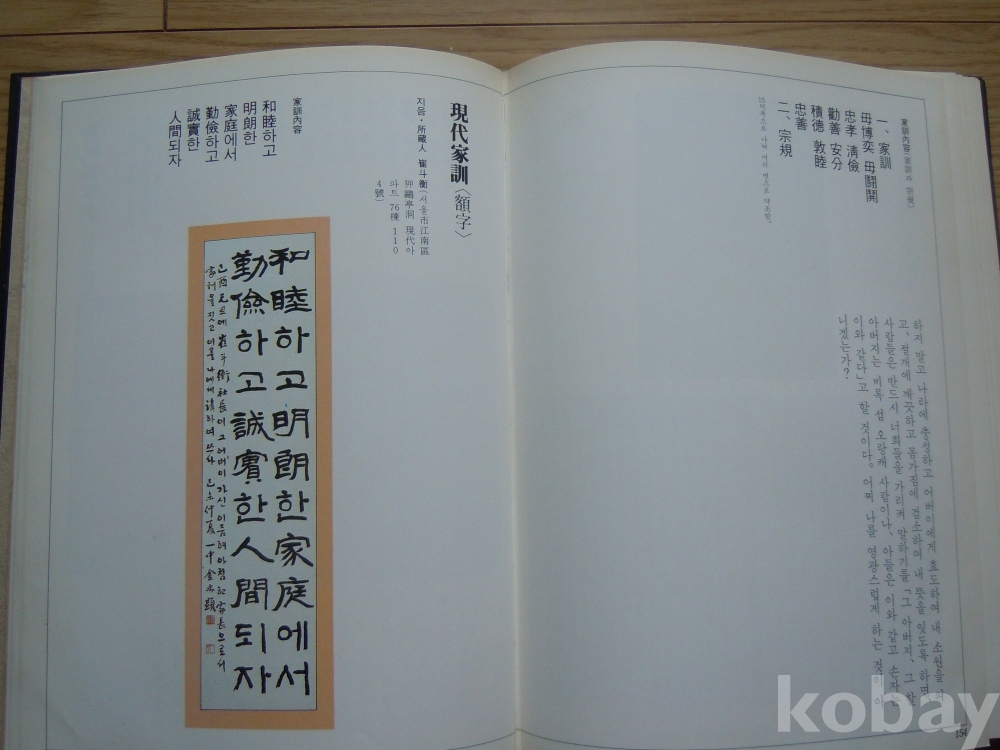 家訓內容(家訓과 宗規)
一、家訓
毋博奕 毋鬪鬩
忠孝 淸儉
勸善 安分
積德 敦睦
忠善
二、宗規
하지 말고 나라에 충성하고 어버이에게 효도하여 내 소원을
고, 절개에 깨끗하고 몸가짐에 검소하여 내 뜻을 잇도록 하면
사람들은 반드시 너희들을 가리켜 말하기를 「그 아버지, 그 할
아버지는 비록 섬 오랑캐 사람이나, 아들은 이와 같고 손자는
이와 같다」고 할 것이다. 어찌 나를 영광스럽게 하는 것이 아
니겠는가?
154
現代家訓〈額字〉
지음·所藏人 崔斗衡(서울市江南區
狎鷗亭洞 現代아
파트 76棟 110
4號)
家訓內容
和睦하고
明朗한
家庭에서
勤儉하고
誠實한
人間되자
和睦하고明朗한家庭에서
勤儉하고誠實한人間되자
kobay